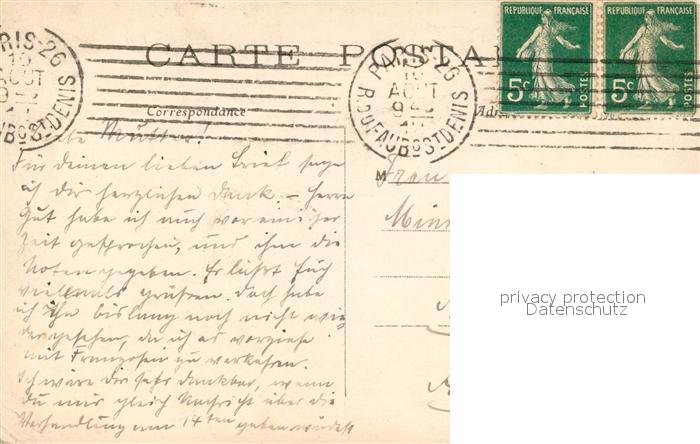 PARIS-26
16
AOUT
R. DU FAUBG ST DENIS
CARTE POSTALE
PARIS-26
16
AOUT
R. DU FAUBG ST DENIS
REPUBLIQUE FRANÇAISE
5c
POSTES
REPUBLIQUE FRANÇAISE
5c
POSTES
Correspondance
Liebe Mutter!
Für deinen lieben Brief sage
ich dir herzlichen Dank. – Herrn
Gut habe ich auch vor einiger
Zeit gesprochen, und ihm die
Noten gegeben. Er läßt Euch
vielmals grüßen. Doch habe
ich ihn bislang noch nicht wie-
dergesehen, da ich es vorziehe
mit Franzosen zu verkehren.
Ich wäre dir sehr dankbar, wenn
du mir gleich Nachricht über die
Verhandlung am 14ten geben würdest
M
Frau
privacy protection
Datenschutz